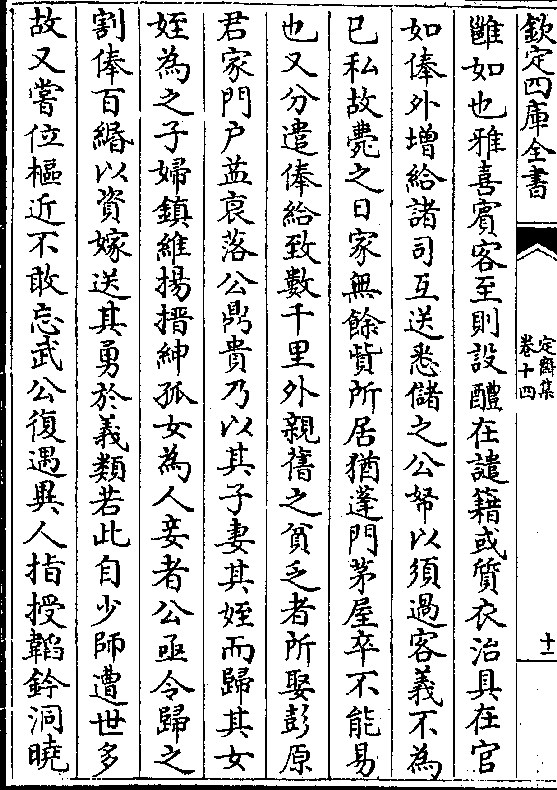 欽定四庫全書
定齋集
卷十四
十一
雝如也雅喜賓客至則設醴在譴籍或質衣治具在官
如俸外增給諸司互送悉儲之公帑以須過客義不為
已私故薨之日家無餘貲所居猶蓬門茅屋卒不能易
也又分遣俸給致數千里外親舊之貧乏者所娶彭原
君家門户益衰落公鼎貴乃以其子妻其姪而歸其女
姪為之子婦鎮維揚搢紳孤女為人妾者公亟令歸之
割俸百緡以資嫁送其勇於義類若此自少師遭世多
故又嘗位樞近不敢忘武公復遇異人指授韜鈐洞曉